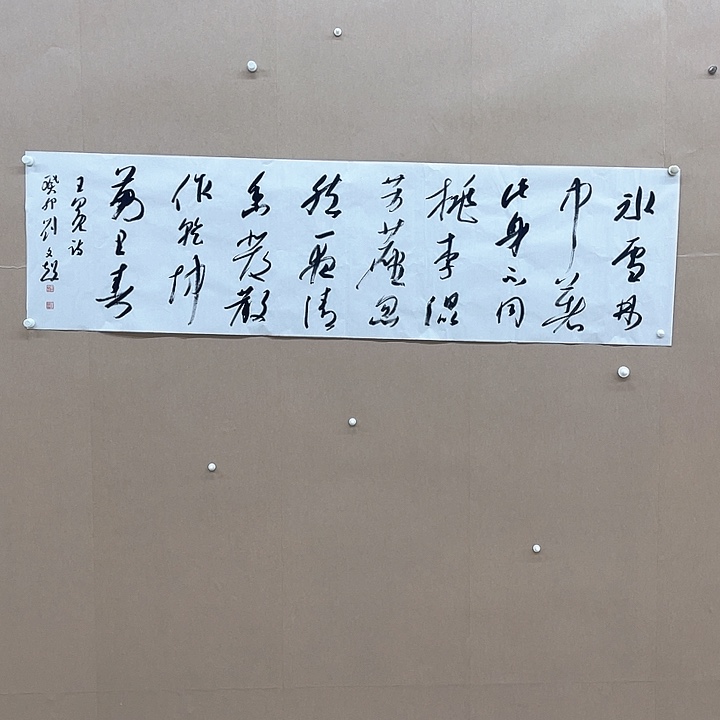 冰雪林
中著
此身不同
桃李混
芳塵忽
然一夜清
香發散
作乾坤
萬里春
王冕诗
癸卯劉文超